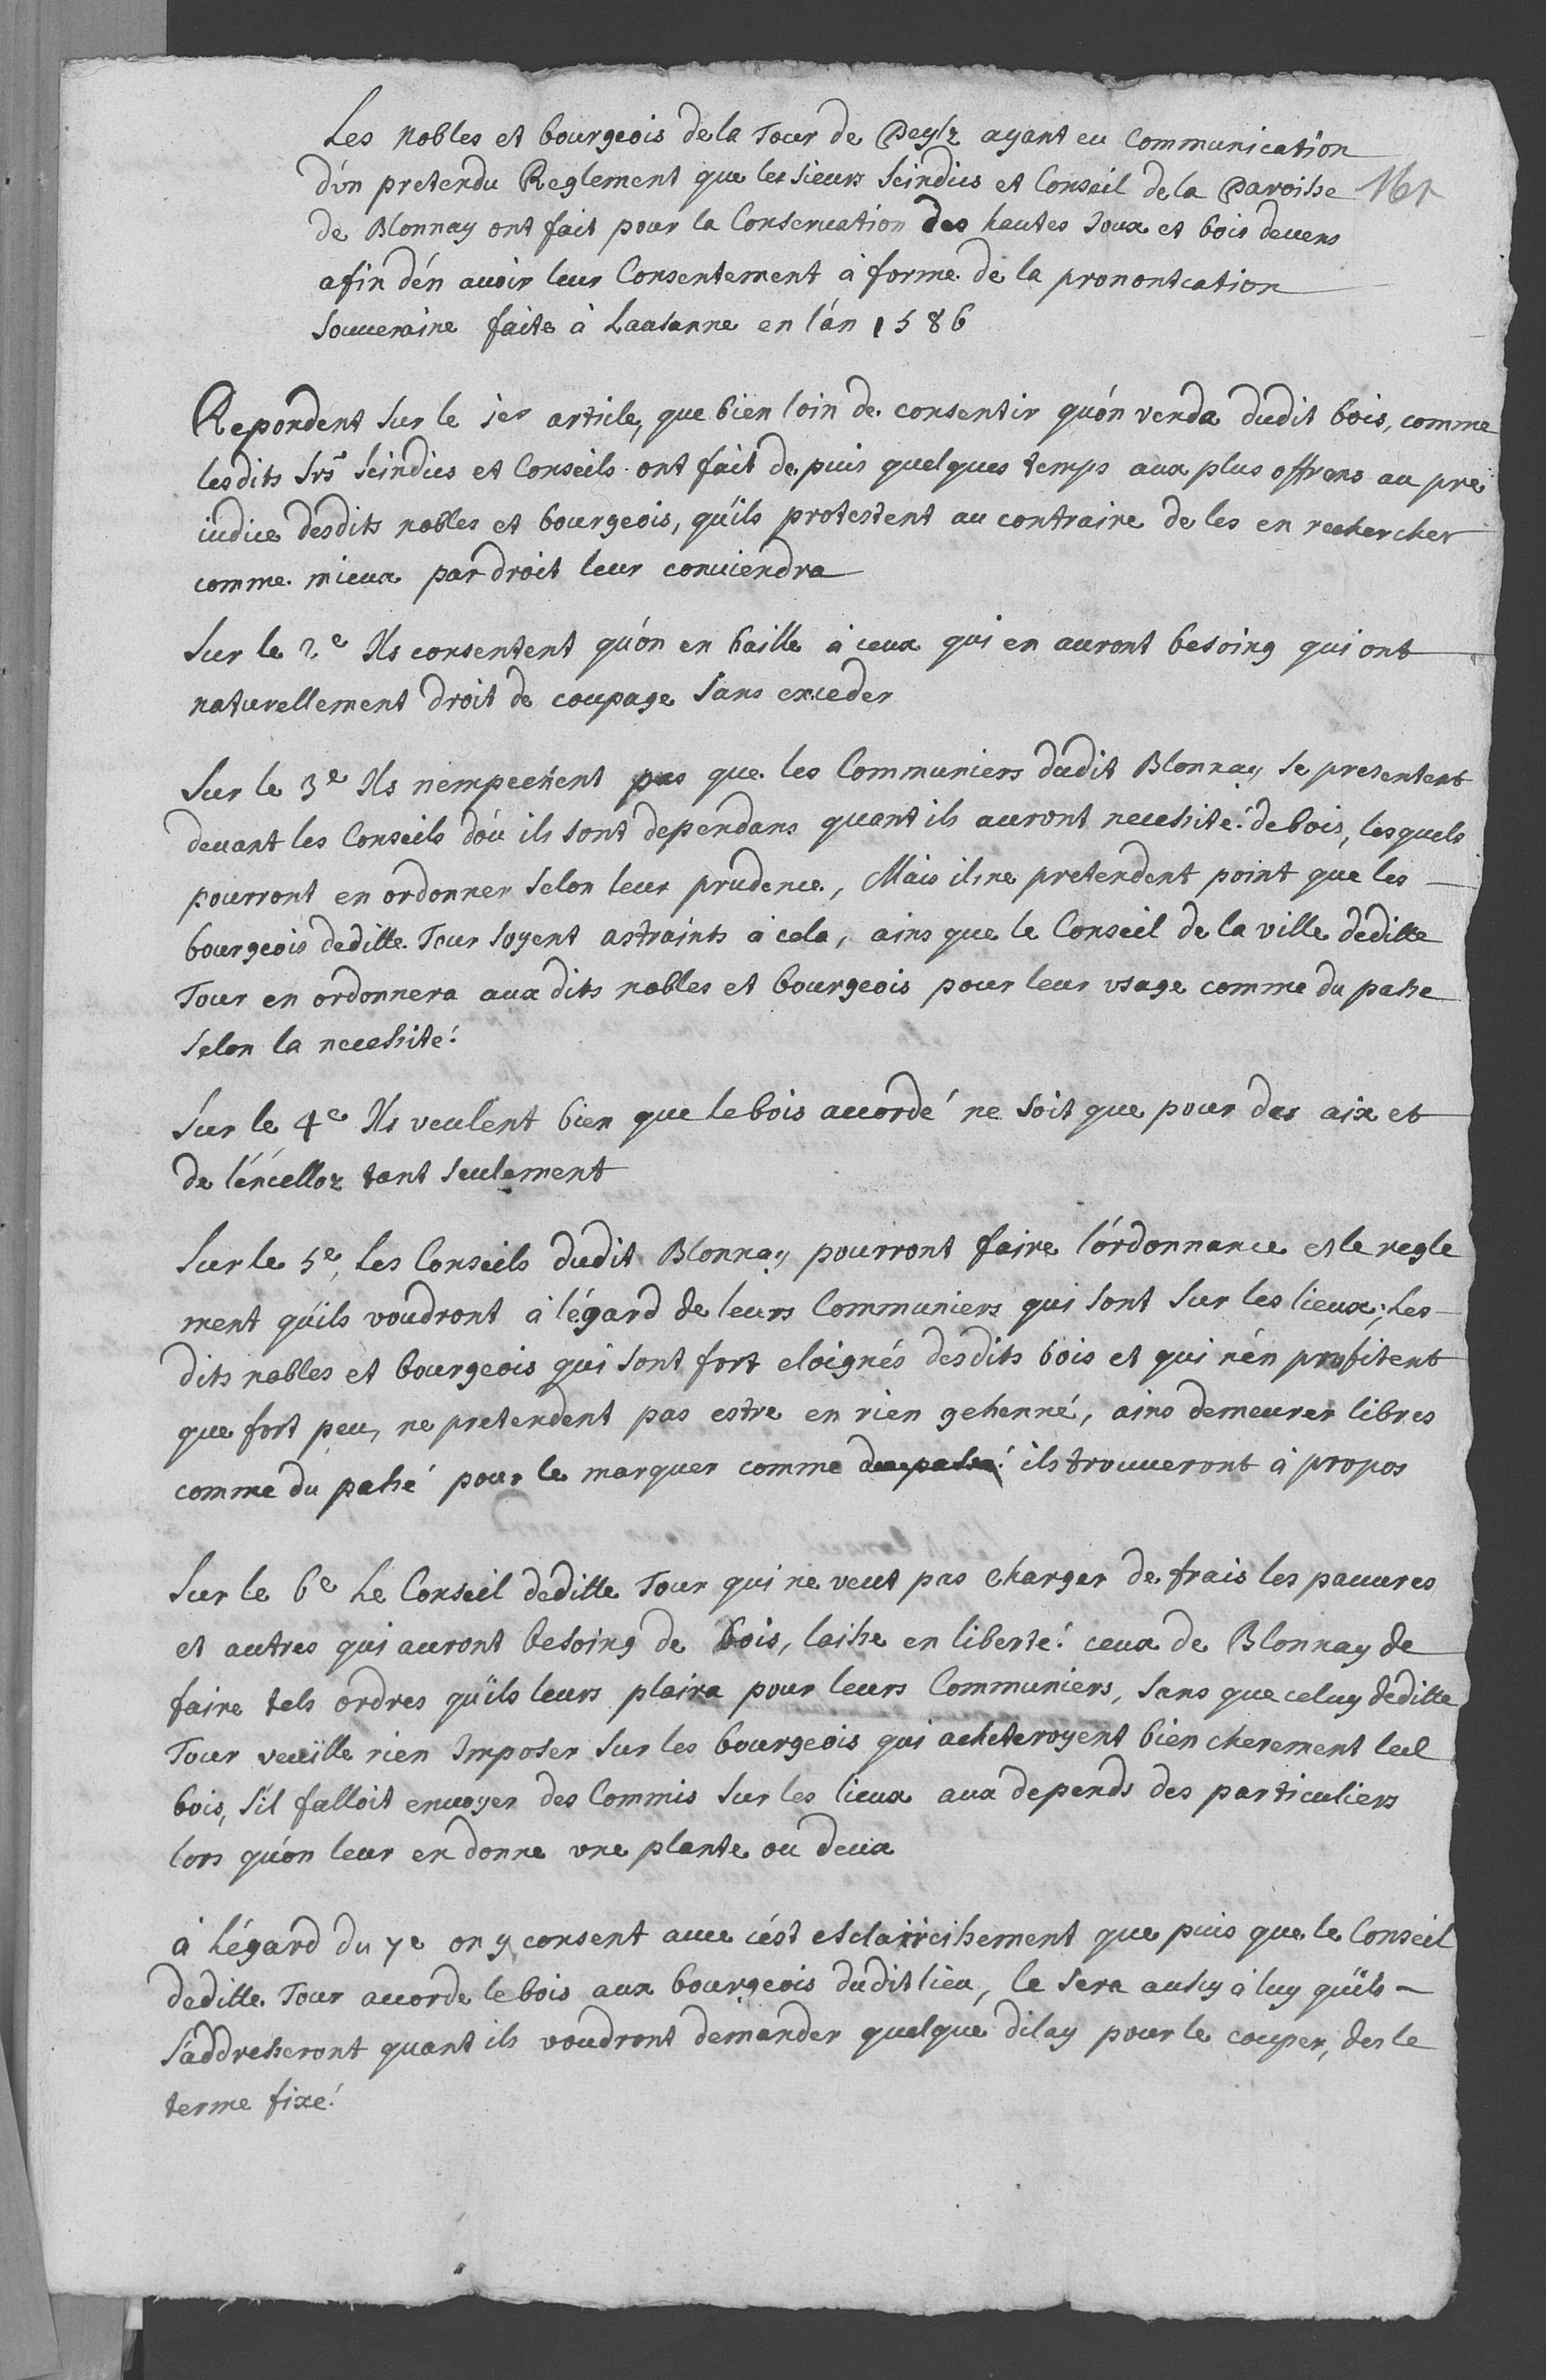 Les nobles et bourgeois de la Tour de Peylz ayant eu Communication
d'ún pretendu Reglement que les sieurs seindics et Conseil de la Paroisse 161
de Blonnay ont fait pour la Conseruation des hautes Joux et bois deuens
afin d'én auoir leur Consentement à forme de la prononteation
souueraine faite à Lausanne en l'án 1586
Repondent sur le 1er article, que bien loin de consentir qu'ón venda dudit bois, comme
lesdits Srs seindics et Conseils ont fait depuis quelques temps aux plus offrans au pre
iudice desdits nobles et bourgeois, qu'ils protestent au contraire de les en rechercher
comme mieux par droit leur conuiendra
Sur le 2e Ils consentent qu'ón en baille à ceux qui en auront besoing qui ont
naturellement droit de coupage sans exceder
Sur le 3e Ils nempechent pas que les Communiers dudit Blonnay se presentent
deuant les Conseils d'óu ils sont dependans quant ils auront necessité de bois, lesquels
pourront en ordonner selon leur prudence, Mais ils ne pretendent point que les
bourgeois deditte Tour soyent astraints à cela, ains que le Conseil de la ville deditte
Tour en ordonnera aux dits nobles et bourgeois pour leur vsage comme du passe
selon la necessité
Sur le 4e Ils veulent bien que le bois accordé ne soit que pour des aix et
de l'éncelloz tant seulement
Sur le 5e, Les Conseils dudit Blonnay pourront faire l'órdonnance et le regle
ment qu'ils voudront à l'égard de leurs Communiers qui sont sur les lieux; Les
dits nobles et bourgeois qui sont fort eloignés desdits bois et qui n'én profitent
que fort peu, ne pretendent pas estre en rien gehenné, ains demeurer libres
comme du passé pour le marquer comme du passé ils trouueront à propos
Sur le 6e Le Conseil deditte Tour qui ne veut pas charger de frais les pauures
et autres qui auront besoing de bois, laisse en liberté ceux de Blonnay de
faire tels ordres qu'ils leurs plaira pour leurs Communiers, sans que celuy deditte
Tour veuïlle rien Imposer sur les bourgeois qui acheteroyent bien cherement led
bois, s'il falloit enuoyer des Commis sur les lieux aux depends des particuliers
lors qu'ón leur en donne vne plante ou deux
à L'égard du 7e on y consent auec cést esclaircissement que puis que le Conseil
deditte Tour accorde le bois aux bourgeois dudit lieu, ce sera aussy à luy qu'ils
s'addresseront quant ils voudront demander quelque dilay pour le couper, des le
terme fixé